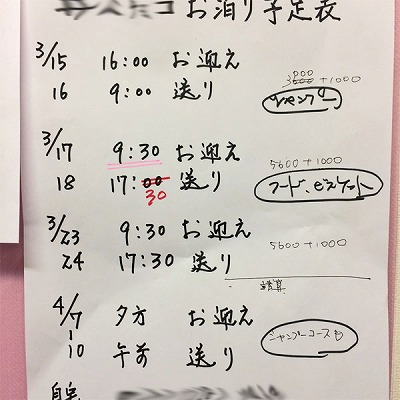 お泊り予定表
3/15 16:00 お迎え
3000 +1000
16 9:00 送り
シャンプー
3/17 9:30 お迎え
5600 +1000
18 17:00 送り
30
フード、ビスケット
3/23 9:30 お迎え
5600 +1000
24 17:30 送り
精算
4/7 夕方 お迎え
シャンプーコースも
10 午前 送り